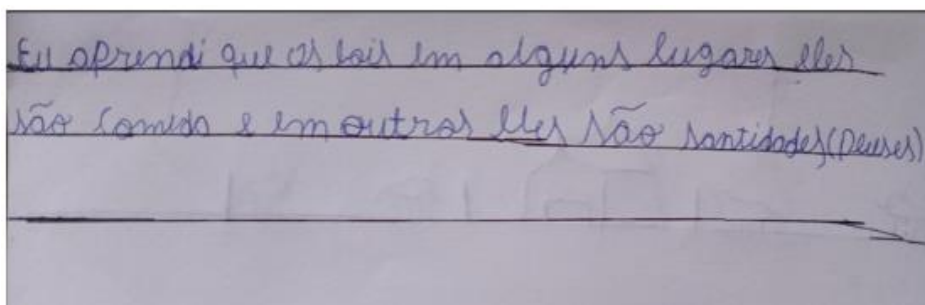 Eu aprendi que os bois em alguns lugares eles
são comida e em outros eles são santidades (Deuses)